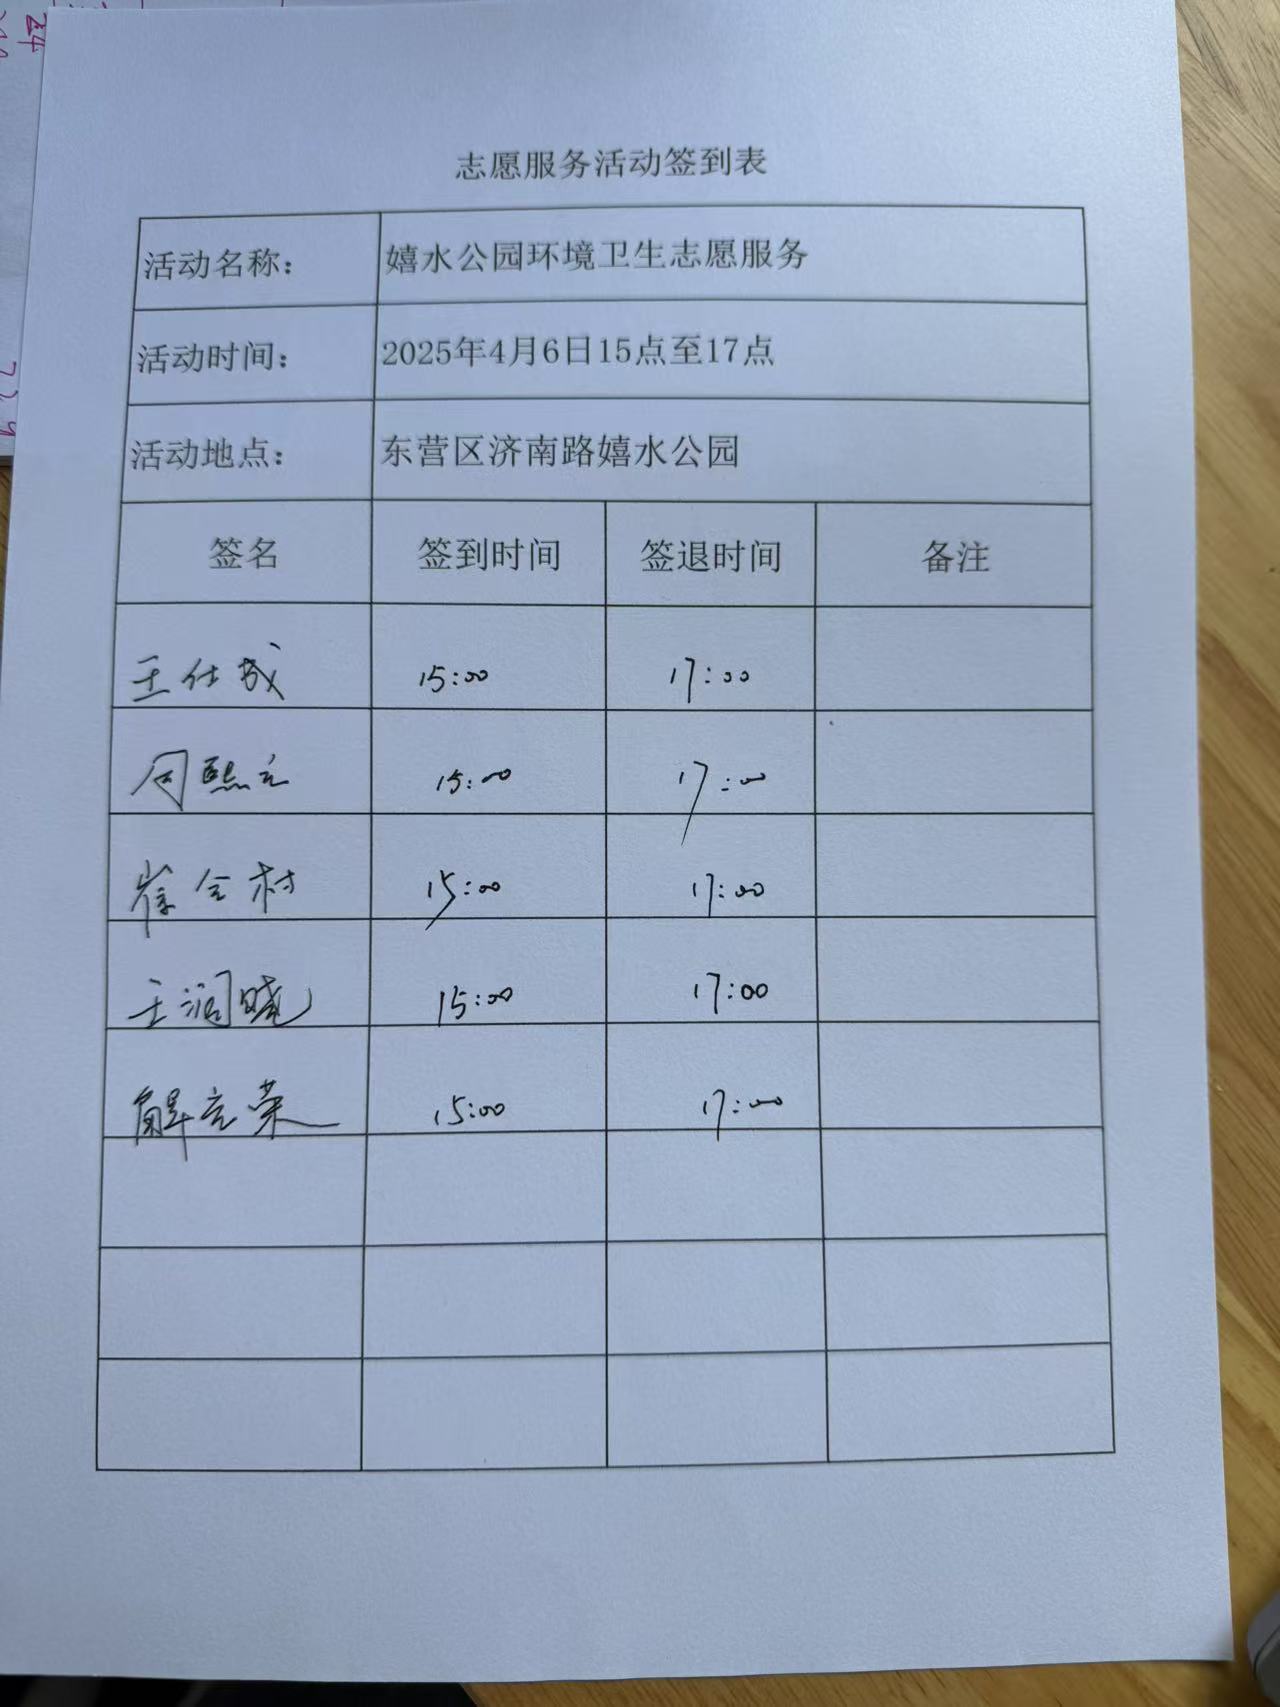 志愿服务活动签到表
活动名称： 嬉水公园环境卫生志愿服务
活动时间： 2025年4月6日15点至17点
活动地点： 东营区济南路嬉水公园
签名 签到时间 签退时间 备注
王仕成 15:00 17:00
周熙立 15:00 17:00
崔全村 15:00 17:00
王润晓 15:00 17:00
解立荣 15:00 17:00